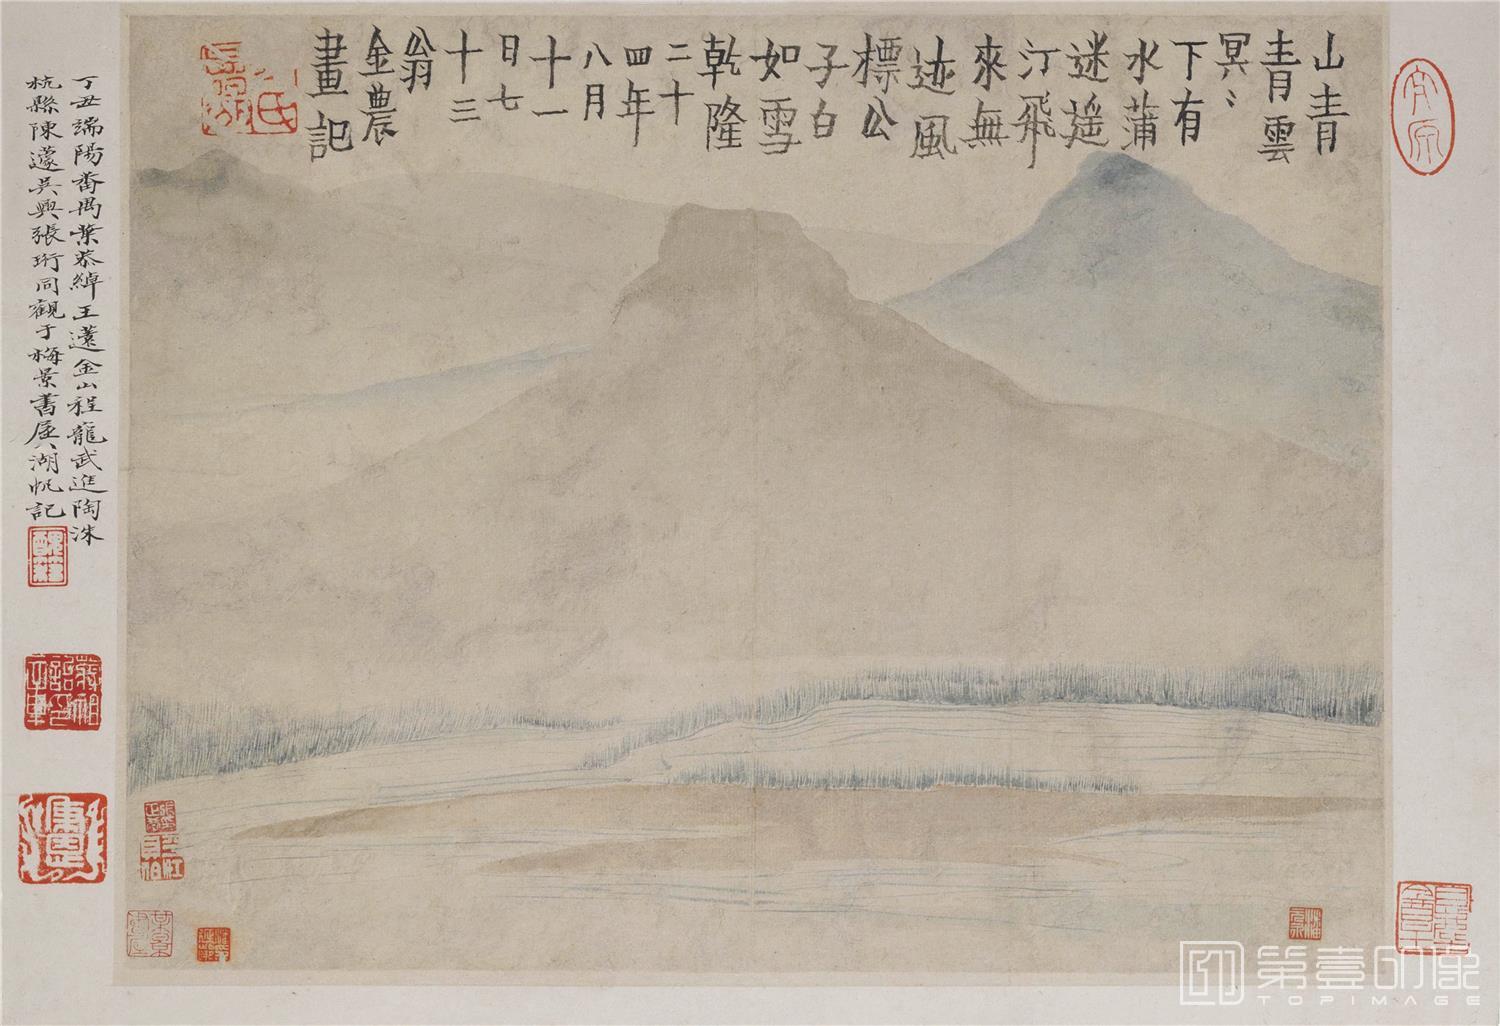 山青
青雲
冥〻
下有
水蒲
迷遥
汀飛
來無
迹風
標公
子白
如雪
乾隆
二十
四年
八月
十一
日七
十三
翁
金農
畫記
丁丑端陽番禺葉恭綽王薳金山程龍武進陶洙
杭縣陳蘧吳興張珩同觀于梅景書屋湖帆記
第壹印象
TOPIMAGE